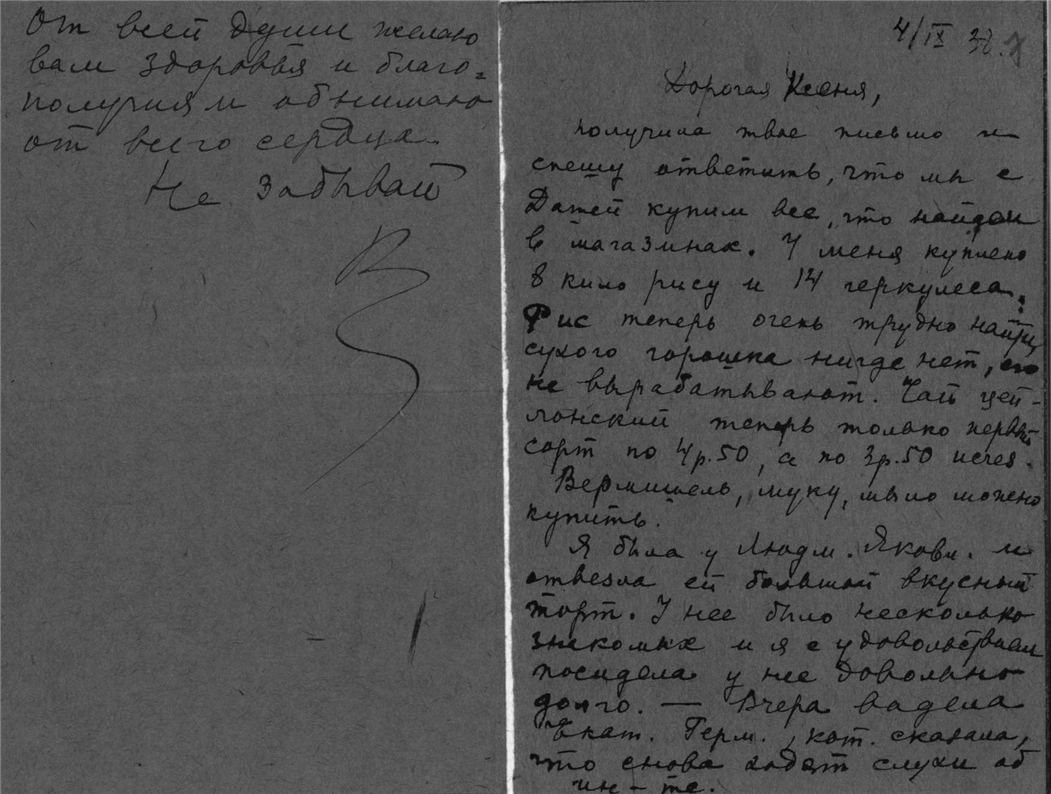 от всей души желаю
вам здоровья и благо=
получия и обнимаю
от всего сердца.
Не забывай
4/IX
Дорогая Ксеня,
получила твое письмо и
спешу ответить, что мы с
Дашей купим все, что найдем
в магазинах. У меня куплено
8 кило рису и 14 геркулеса.
Рис теперь очень трудно найти,
сухого горошка нигде нет, его
не вырабатывают. Чай цей-
лонский теперь только первый
сорт по 4р.50, а по 3р.50 исчез.
Вермишель, муку, мыло можно
купить.
Я была у Людм. Яковл. и
отвезла ей большой вкусный
торт. У нее было несколько
знакомых и я с удовольствием
посидела у нее довольно
долго. — Вчера видела
Екат. Герм., кот. сказала,
что снова ходят слухи об
ин-те.